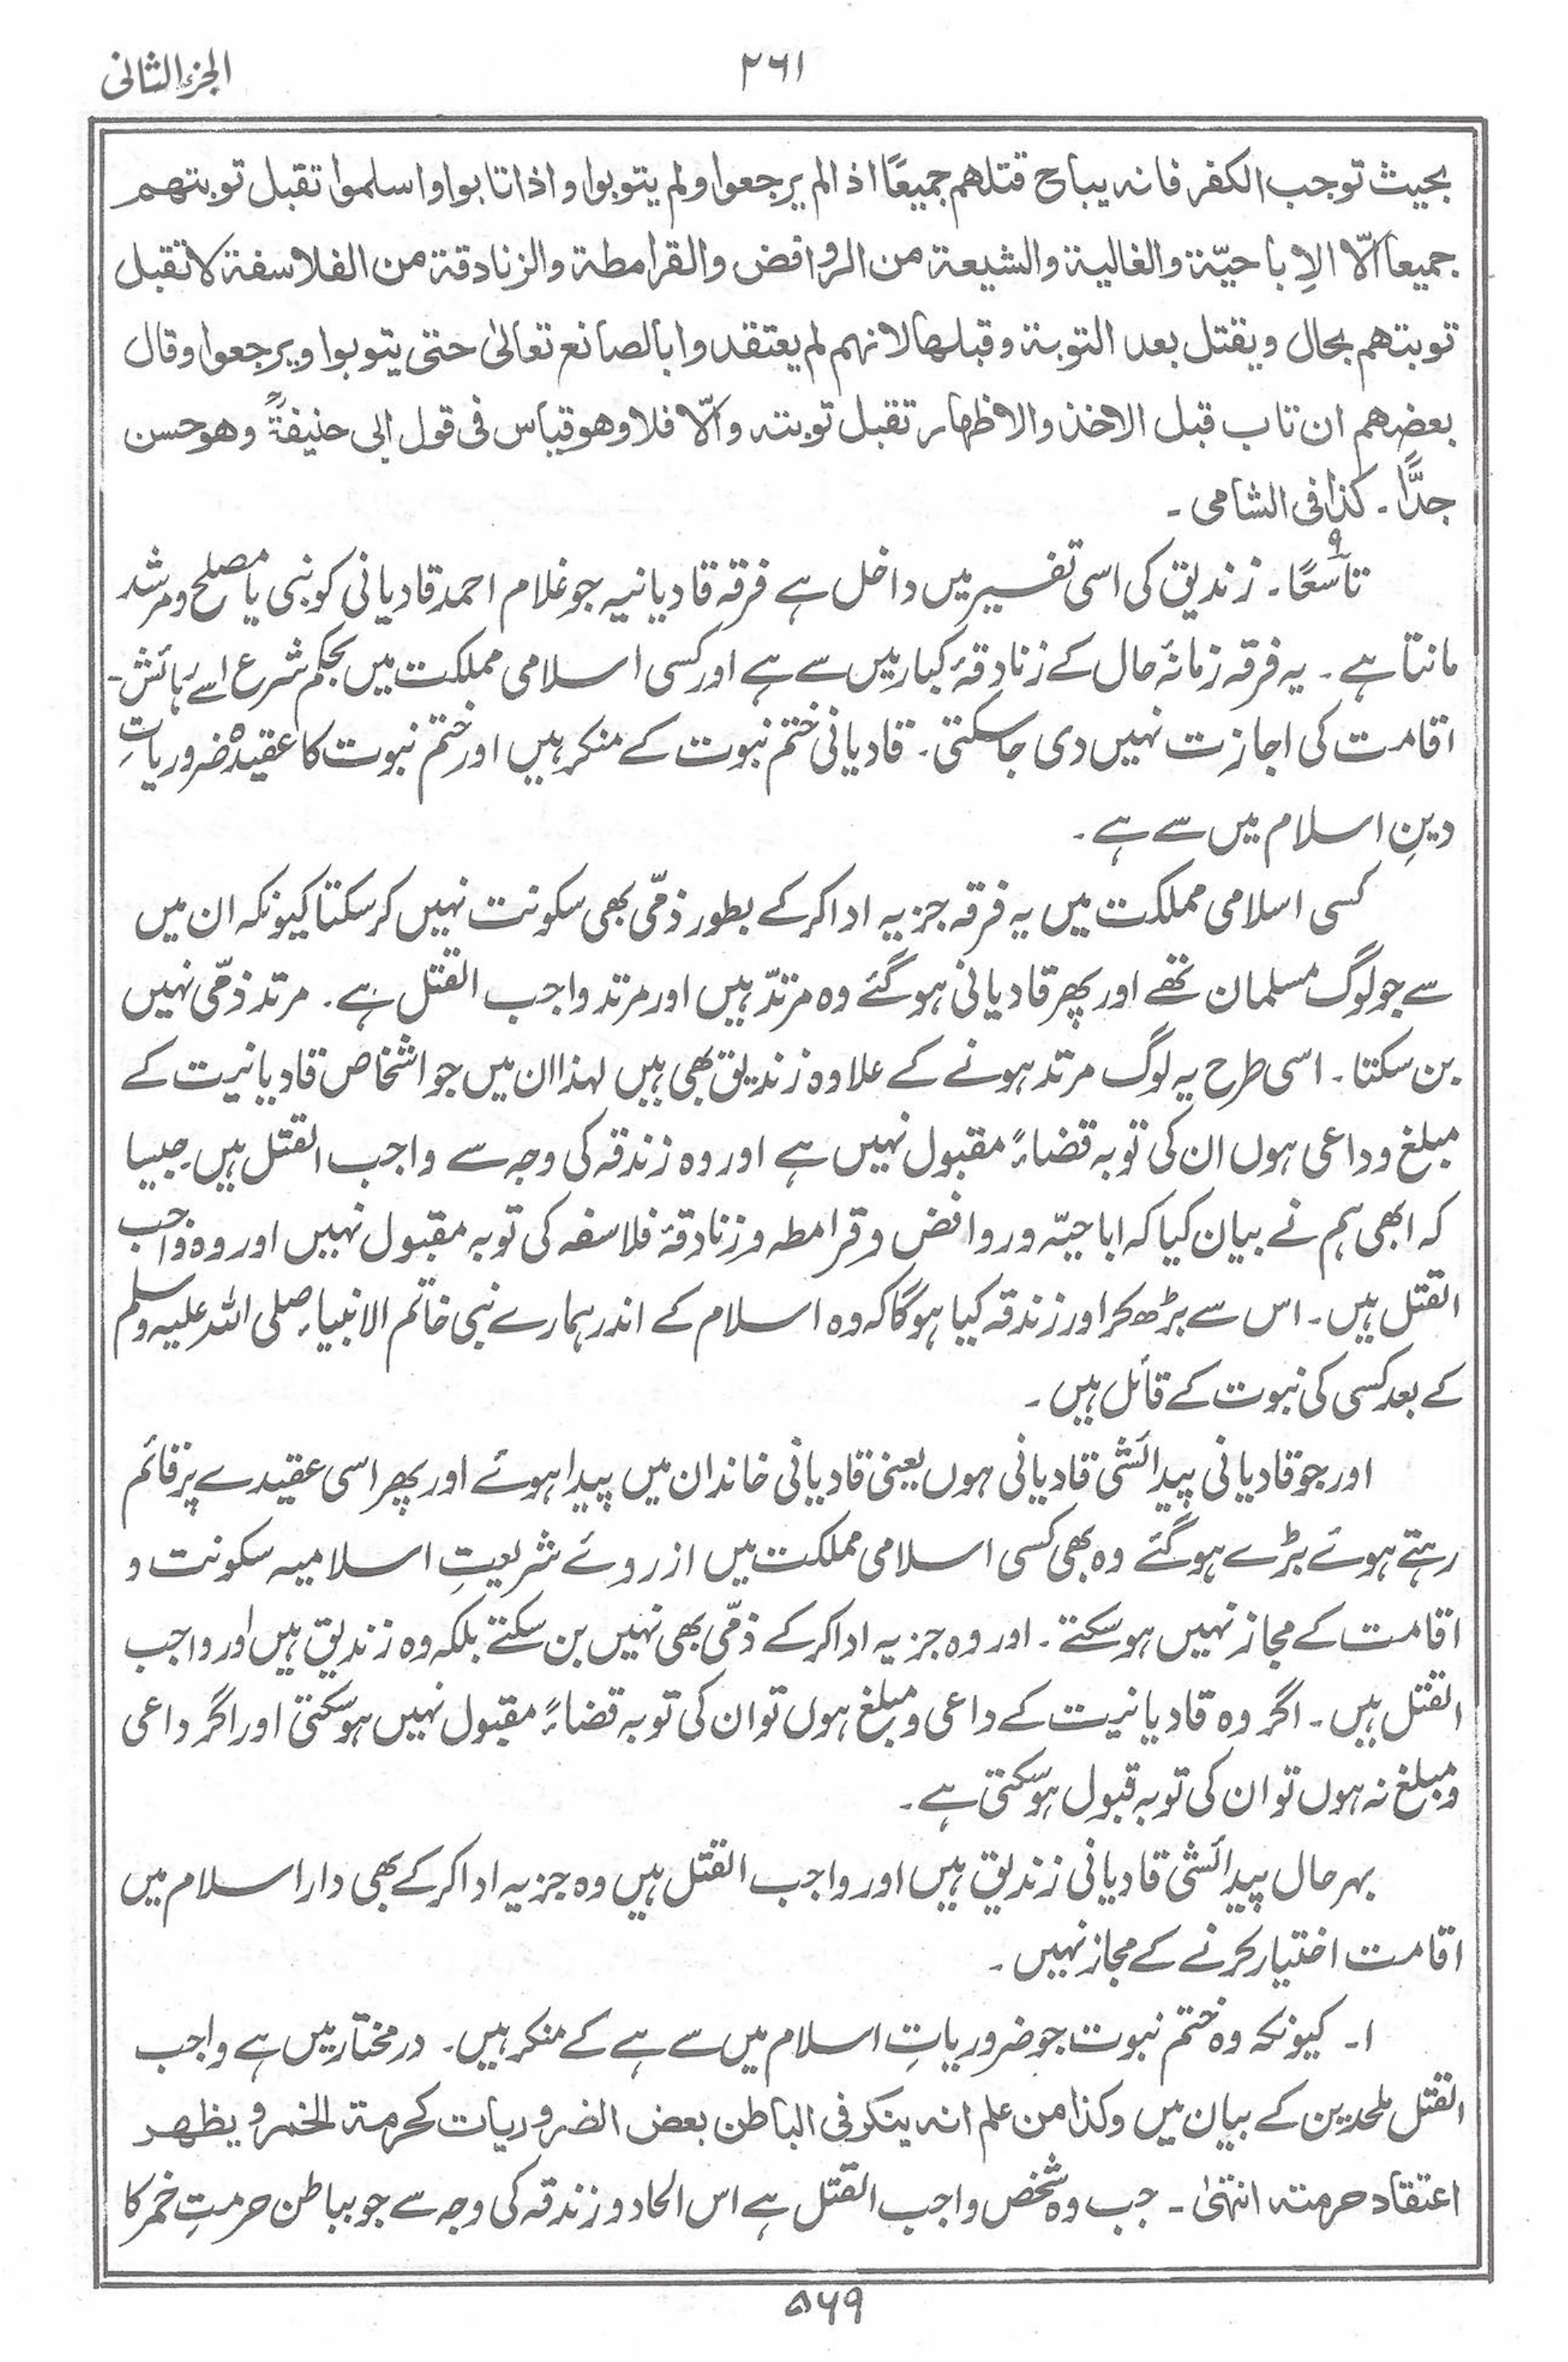 الجزء الثانی
۲۶۱
بحيث توجب الكفر فانه يباح قتلهم جميعًا اذا لم يرجعوا ولم يتوبوا واذا تابوا واسلموا تقبل توبتهم
جميعا الّا الاِباحيّة والغالية والشيعة من الروافض والقرامطة والزنادقة من الفلاسفة لا تقبل
توبتهم بحال ويقتل بعد التوبة وقبلها لانهم لم يعتقدوا بالصانع تعالىٰ حتى يتوبوا ويرجعوا وقال
بعضهم ان تاب قبل الاخذ والاظهار تقبل توبته والّا فلا وهو قياس فى قول ابى حنيفةؒ وهو حسن
جدًّا۔ كذا فى الشامى۔
تاسعًا۔ زندیق کی اسی تفسیر میں داخل ہے فرقہ قادیانیہ جو غلام احمد قادیانی کو نبی یا مصلح و مرشد
مانتا ہے۔ یہ فرقہ زمانۂ حال کے زنادِقۂ کبار میں سے ہے اور کسی اسلامی مملکت میں بحکم شرع اسے رہائش۔
اقامت کی اجازت نہیں دی جاسکتی۔ قادیانی ختم نبوت کے منکر ہیں اور ختم نبوت کا عقیدہ ضروریاتِ
دینِ اسلام میں سے ہے۔
کسی اسلامی مملکت میں یہ فرقہ جزیہ ادا کرکے بطور ذمّی بھی سکونت نہیں کرسکتا کیونکہ ان میں
سے جو لوگ مسلمان تھے اور پھر قادیانی ہوگئے وہ مرتدّ ہیں اور مرتد واجب القتل ہے۔ مرتد ذمّی نہیں
بن سکتا۔ اسی طرح یہ لوگ مرتد ہونے کے علاوہ زندیق بھی ہیں لہذا ان میں جو اشخاص قادیانیت کے
مبلغ و داعی ہوں ان کی توبہ قضاءً مقبول نہیں ہے اور وہ زندقہ کی وجہ سے واجب القتل ہیں جیسا
کہ ابھی ہم نے بیان کیا کہ اباحیّہ و روافض و قرامطہ و زنادقۂ فلاسفہ کی توبہ مقبول نہیں اور وہ واجب
القتل ہیں۔ اس سے بڑھ کر اور زندقہ کیا ہوگا کہ وہ اسلام کے اندر ہمارے نبی خاتم الانبیاء صلی اللہ علیہ وسلم
کے بعد کسی کی نبوت کے قائل ہیں۔
اور جو قادیانی پیدائشی قادیانی ہوں یعنی قادیانی خاندان میں پیدا ہوئے اور پھر اسی عقیدے پر قائم
رہتے ہوئے بڑے ہوگئے وہ بھی کسی اسلامی مملکت میں ازروئے شریعتِ اسلامیہ سکونت و
اقامت کے مجاز نہیں ہوسکتے۔ اور وہ جزیہ ادا کرکے ذمّی بھی نہیں بن سکتے بلکہ وہ زندیق ہیں اور واجب
القتل ہیں۔ اگر وہ قادیانیت کے داعی و مبلغ ہوں تو ان کی توبہ قضاءً مقبول نہیں ہوسکتی اور اگر داعی
و مبلغ نہ ہوں تو ان کی توبہ قبول ہوسکتی ہے۔
بہرحال پیدائشی قادیانی زندیق ہیں اور واجب القتل ہیں وہ جزیہ ادا کرکے بھی دار اسلام میں
اقامت اختیار کرنے کے مجاز نہیں۔
۱۔ کیونکہ وہ ختم نبوت جو ضروریاتِ اسلام میں سے ہے کے منکر ہیں۔ درمختار میں ہے واجب
القتل ملحدین کے بیان میں وكذا من علم انه ينكر فى الباطن بعض الضروريات كحرمة الخمر ويظهر
اعتقاد حرمته انتهىٰ۔ جب وہ شخص واجب القتل ہے اس الحاد و زندقہ کی وجہ سے جو بباطن حرمتِ خمر کا
۵۶۹